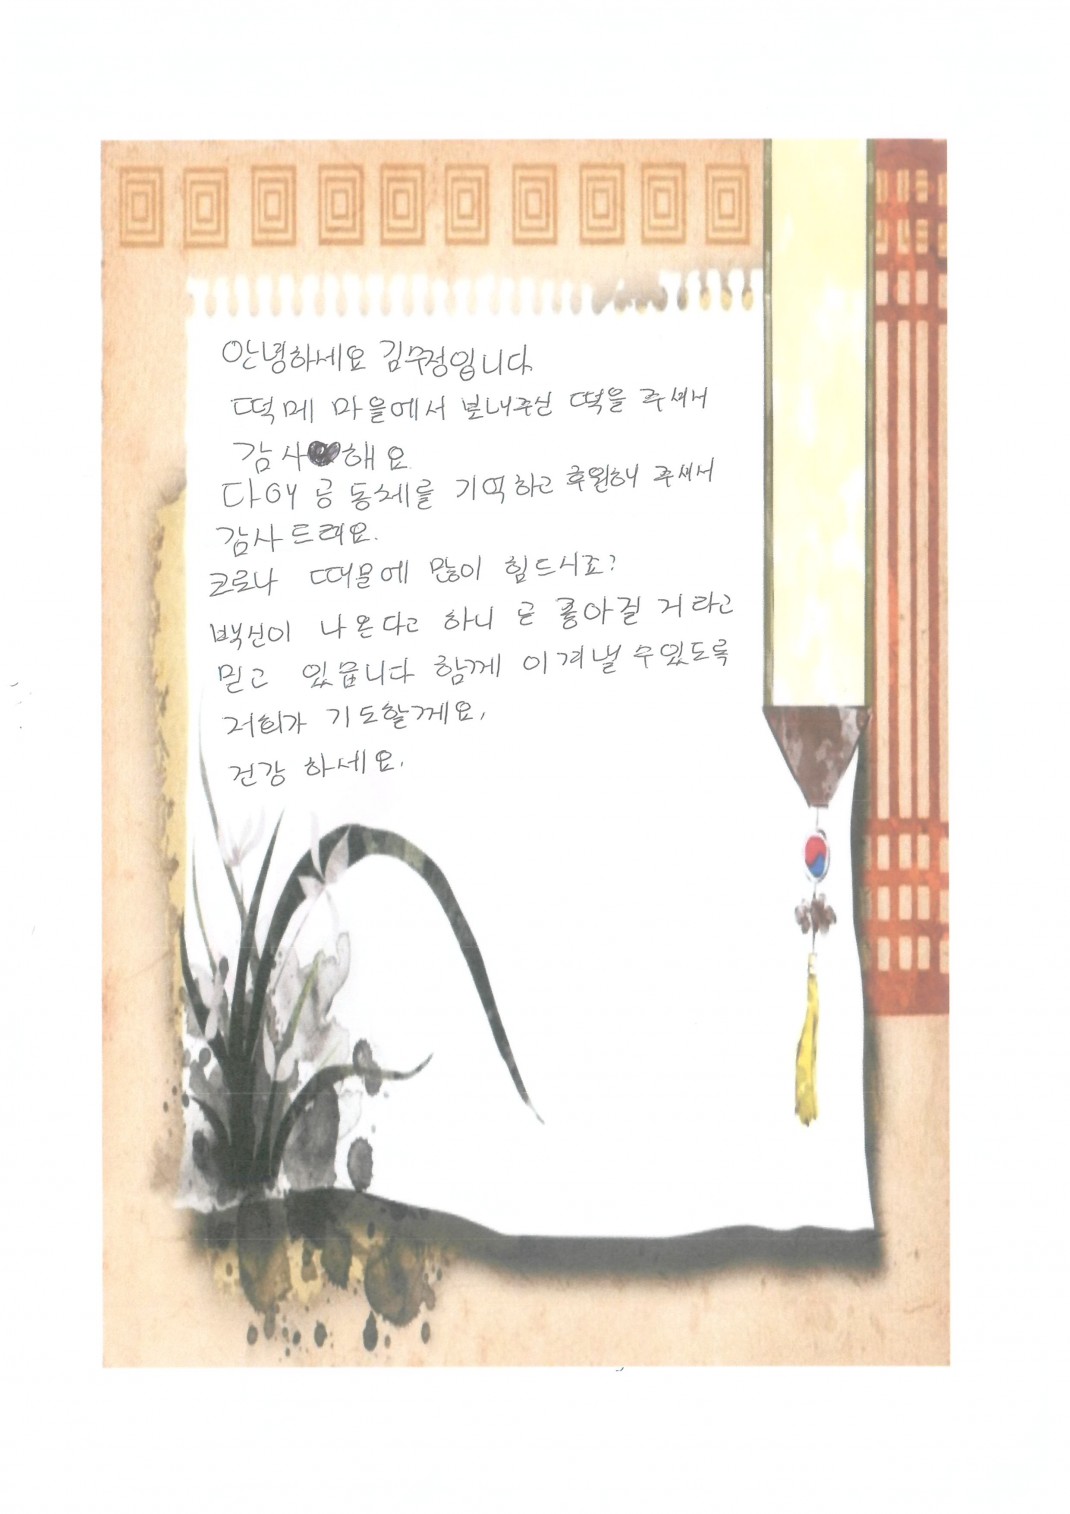 안녕하세요 김수정입니다
떡메 마을에서 보내주신 떡을 주셔서
감사해요
다애 공동체를 기억하고 후원해 주셔서
감사드려요.
코로나 때문에 많이 힘드시죠?
백신이 나온다고 하니 곧 좋아질 거라고
믿고 있읍니다 함께 이겨낼 수 있도록
저희가 기도할께요,
건강 하세요.